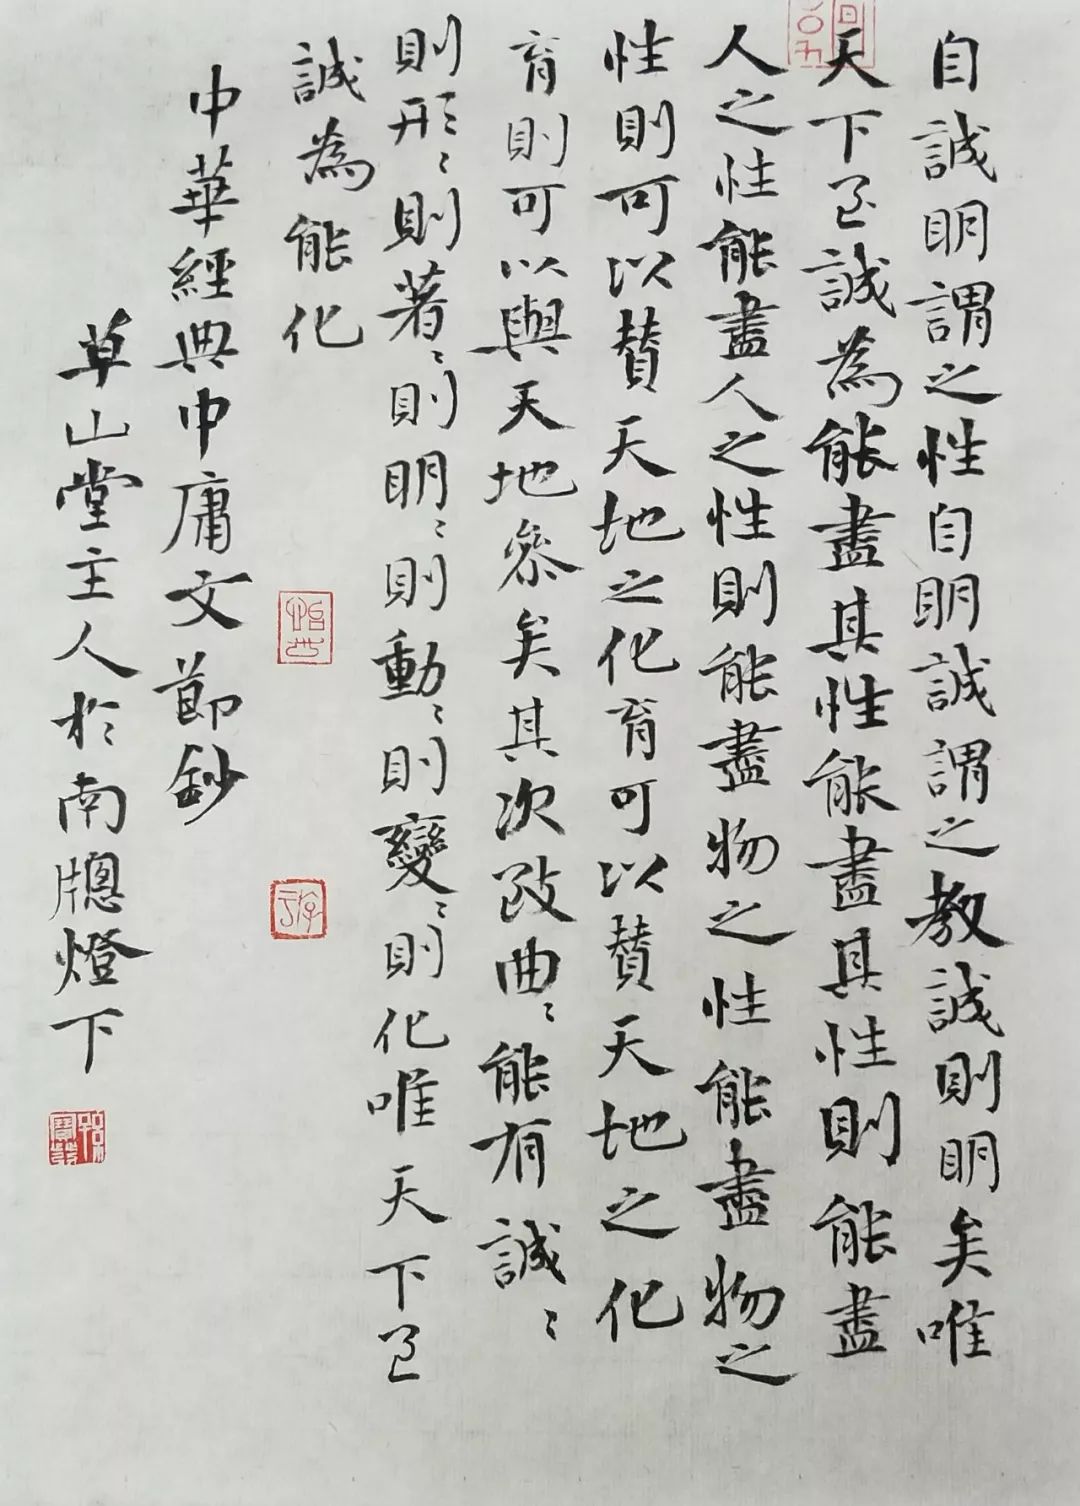 自誠明謂之性自明誠謂之教誠則明矣唯
天下至誠為能盡其性能盡其性則能盡
人之性能盡人之性則能盡物之性能盡物之
性則可以贊天地之化育可以贊天地之化
育則可以與天地參矣其次致曲〻能有誠〻
則形〻則著〻則明〻則動〻則變〻則化唯天下至
誠為能化
中華經典中庸文節鈔
草山堂主人於南牕燈下